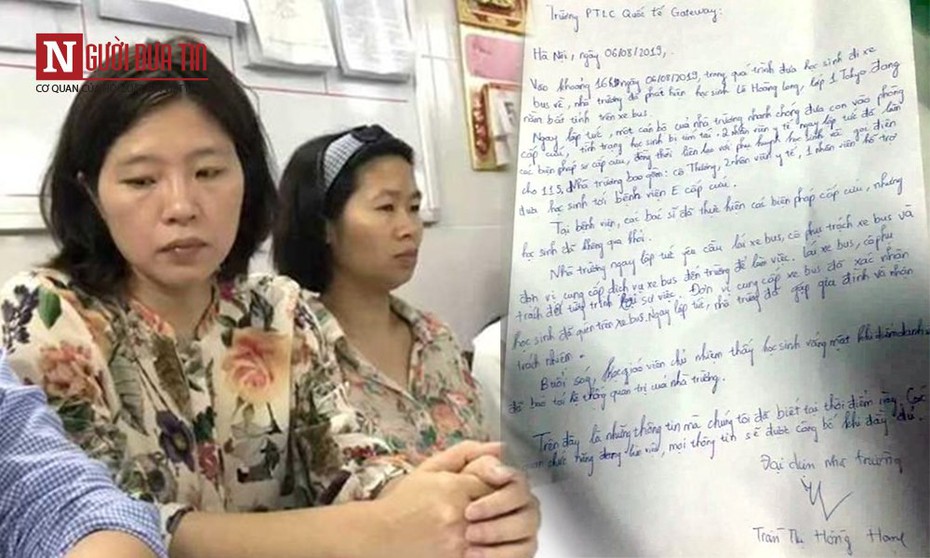 NGƯỜI ĐƯA TIN
CƠ QUAN CỦA
Trường PTLC Quốc tế Gateway:
Hà Nội, ngày 06/08/2019,.
Vào khoảng 16h ngày 06/08/2019, trong quá trình đưa học sinh đi xe
bus về, nhà trường đã phát hiện học sinh Lê Hoàng Long, lớp 1 Tokyo đang
nằm bất tỉnh trên xe bus.
Ngay lập tức, một cán bộ của nhà trường nhanh chóng đưa con vào phòng
cấp cứu, tình trạng học sinh bị tím tái. 2 nhân viên y tế ngay lập tức đã làm
các biện pháp sơ cấp cứu, đồng thời liên lạc với phụ huynh học sinh và gọi điện
cho 115. Nhà trường bao gồm: cô Thương, 2 nhân viên y tế, 1 nhân viên hỗ trợ
đưa học sinh tới bệnh viện E cấp cứu.
Tại bệnh viện, các bác sĩ đã thực hiện các biện pháp cấp cứu, nhưng
học sinh đã không qua khỏi.
Nhà trường ngay lập tức yêu cầu lái xe bus, cô phụ trách xe bus và
đơn vị cung cấp dịch vụ xe bus đến trường để làm việc. lái xe bus, cô phụ
trách đã tường trình sự việc. Đơn vị cung cấp xe bus đã xác nhận
học sinh đã quên trên xe bus. Ngay lập tức, nhà trường đã gặp gia đình và nhận
trách nhiệm.
Buổi sáng, giáo viên chủ nhiệm thấy học sinh vắng mặt khi điểm danh
đã báo tới hệ thống quản trị của nhà trường.
Trên đây là những thông tin mà chúng tôi đã biết tại thời điểm này. Các
cơ quan chức năng đang làm việc, mọi thông tin sẽ được công bố khi đầy đủ.
Đại diện nhà trường
Trần Thị Hồng Hạnh